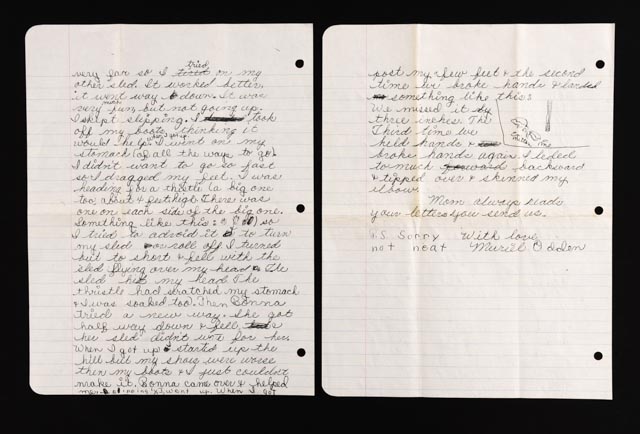 very far so I tried on my
other sled. It worked better.
it went way down. It was
very much fun, but not going up.
I kept slipping. I took
off my boots thinking it
would help when I got up. I went on my
stomach all the way to go.
I didn't want to go so fast
so I dragged my feet. I was
heading for a thistle (a big one
too about 4 feet high. There was
one on each side of the big one.
Something like this: so
I tried to advoid it to turn
my sled or roll off I turned
but to short & fell with the
sled flying over my head & the
sled hit my head The
thristle had scratched my stomach
& I was soaked too. Then Donna
tried a new way. She got
half way down & fell
her sled didn't wore for her.
When I got up & started up the
hill but my shoes were worse
then my boots & I just couldn't
make it. Donna came over & helped
me. slipping I went up. When I got
post my few feet & the second
time we broke hands & landed
something like this:
We missed it by
three inches. The
Third time we
held hands &
broke hands again I leded
to much backward
& tipped over & skinned my
elbow.
Mom always reads
your letters you send us.
P.S. Sorry With love
not neat Muriel Odden